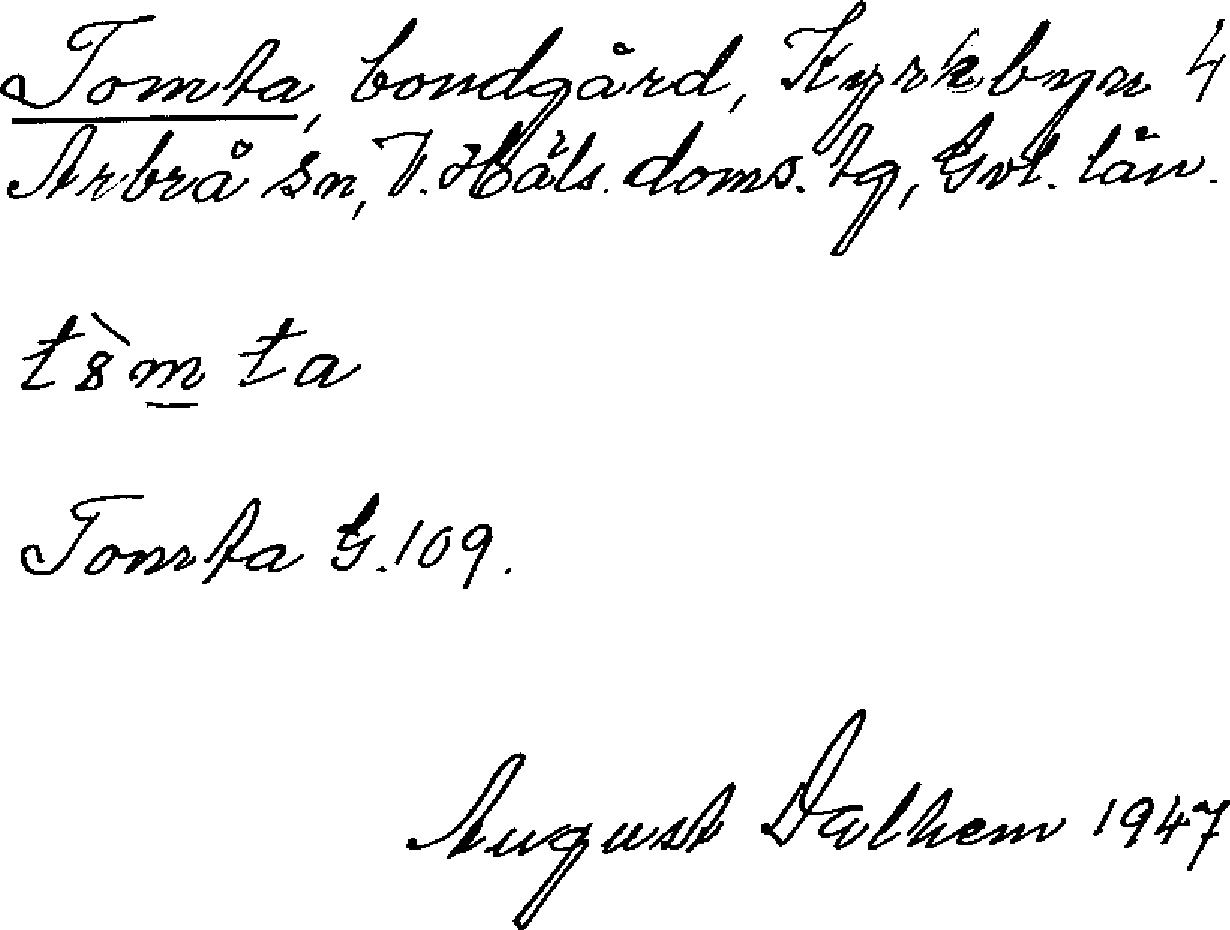 Tomta, bondgård, Kyrkbyn 4
Arbrå sn, V. Häls. doms. tg, Gvl. län.
Tomta G. 109.
August Dalhem 1947